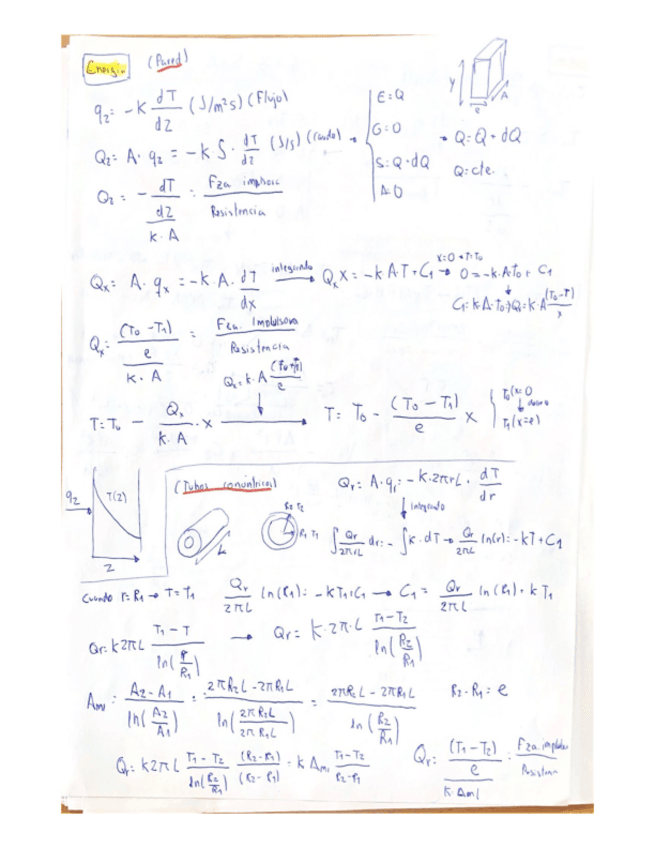 Energía (Pared)
q₂ = -K dT/dz (J/m²s) (Flujo)
Q₂ = A · q₂ = -K · S · dT/dz (J/s) (caudal) →
Q₂ = - dT / (dz / k · A) = Fza. impulsora / Resistencia
E = Q
G = 0
S = Q + dQ
A = 0
→ Q = Q + dQ
Q = cte.
y
e
A
Qx = A · qx = -K · A · dT/dx integrando → Qx X = -K · A · T + C₁ → x=0 → T=T₀ 0 = -k · A · T₀ + C₁
C₁ = k · A · T₀ → Q = K · A (T₀ - T)/x
Qx = (T₀ - T₁) / (e / K · A) = Fza. Impulsora / Resistencia
Qx = k · A (T₀ - T₁)/e
T = T₀ - Qx/(K · A) · x → T = T₀ - (T₀ - T₁)/e x
T₀ (x=0
T₁ (x=e)
q₂
T(z)
z
(Tubos concéntricos)
L
R₂ T₂
R₁ T₁
Qr = A · qr = -K · 2πrL · dT/dr
integrando
∫ Qr/2πrL dr = - ∫ K · dT → Qr/2πL ln(r) = -kT + C₁
Cuando r = R₁ → T = T₁ Qr/2πL ln(R₁) = -kT₁ + C₁ → C₁ = Qr/2πL ln(R₁) + kT₁
Qr = k2πL (T₁ - T)/ln(r/R₁) → Qr = K · 2π · L (T₁ - T₂)/ln(R₂/R₁)
Aml = (A₂ - A₁)/ln(A₂/A₁) = (2πR₂L - 2πR₁L)/ln(2πR₂L/2πR₁L) = (2πR₂L - 2πR₁L)/ln(R₂/R₁) R₂ - R₁ = e
Qr = k2πL (T₁ - T₂)/ln(R₂/R₁) (R₂ - R₁)/(R₂ - R₁) = k Aml (T₁ - T₂)/(R₂ - R₁)
Qr = (T₁ - T₂) / (e / K · Aml) = Fza. impulsora / Resistencia